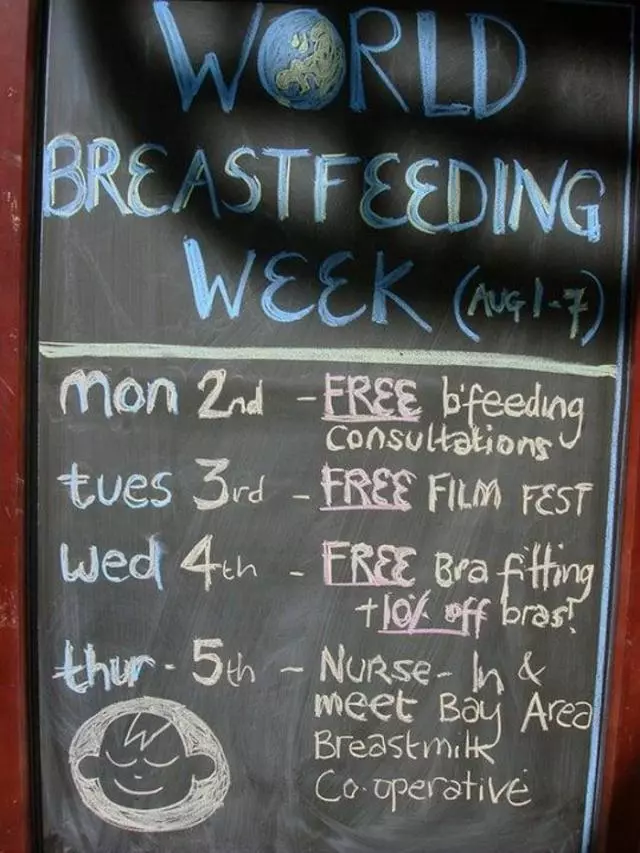 WORLD
BREASTFEEDING
WEEK (AUG 1-7)
mon 2nd - FREE b'feeding
consultations
tues 3rd - FREE FILM FEST
wed 4th - FREE Bra fitting
+10% off bras!
thur - 5th - NURSE-In &
meet Bay Area
Breastmilk
Co-operative